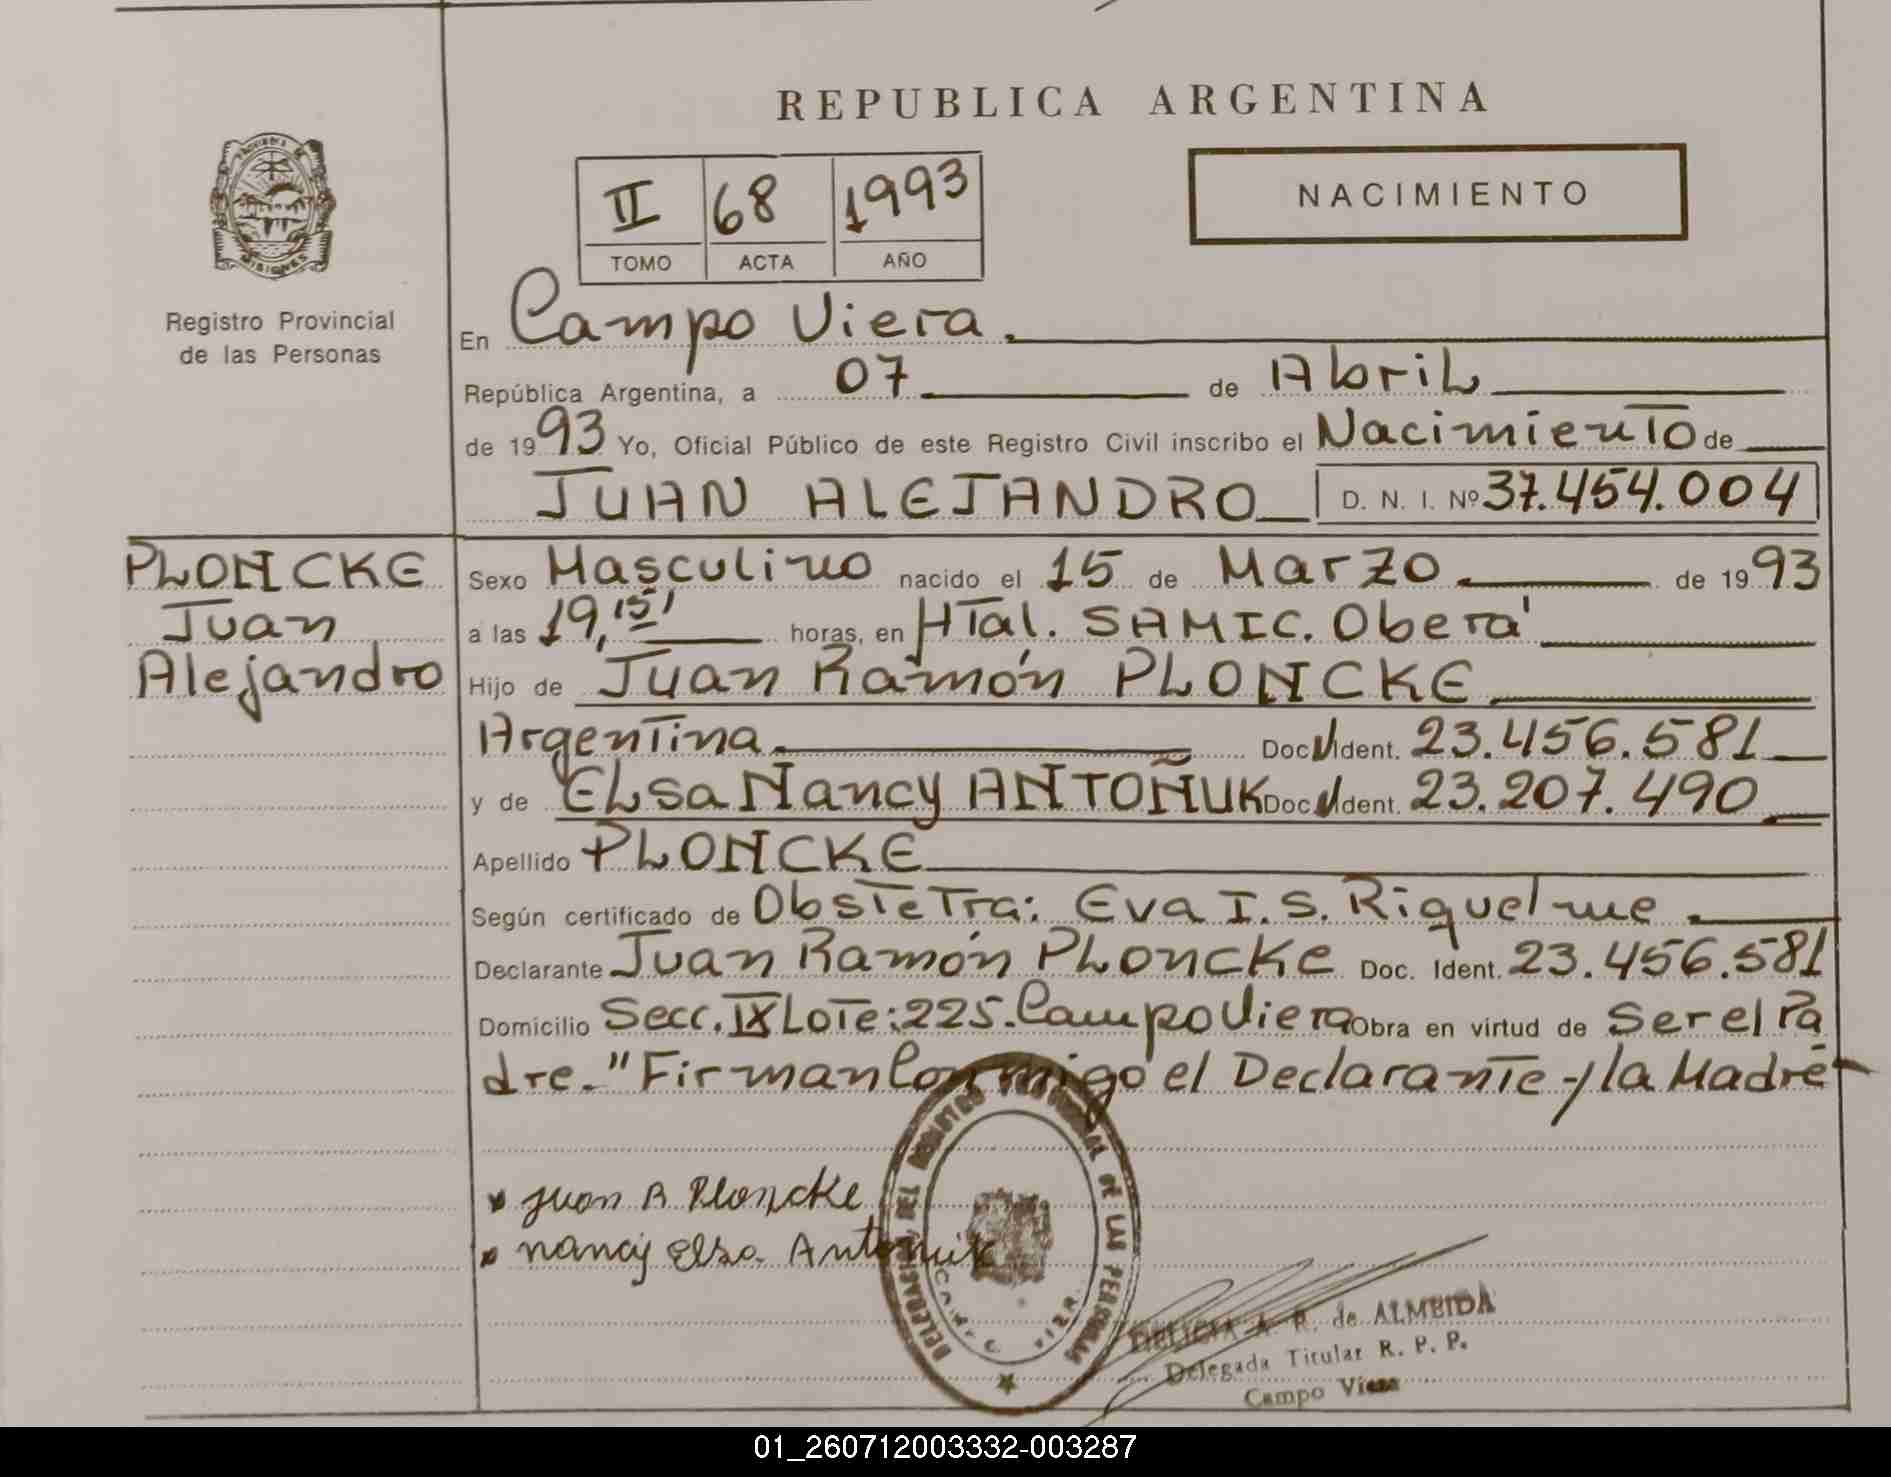 REPUBLICA ARGENTINA
II 68 1993
TOMO ACTA AÑO
NACIMIENTO
PROVINCIA DE
MISIONES
Registro Provincial
de las Personas
En Campo Viera.
República Argentina, a 07 de Abril
de 1993 Yo, Oficial Público de este Registro Civil inscribo el Nacimiento de
JUAN ALEJANDRO D. N. I. Nº 37.454.004
PLONCKE
Juan
Alejandro
Sexo Masculino nacido el 15 de Marzo de 1993
a las 19,15' horas, en HTal. SAMIC. Oberá
Hijo de Juan Ramón PLONCKE
Argentina Doc. Ident. 23.456.581
y de ELsa Nancy ANTOÑUK Doc. Ident. 23.207.490
Apellido PLONCKE
Según certificado de ObsTeTra: Eva I. S. Riquelme.
Declarante Juan Ramón PLoncke Doc. Ident. 23.456.581
Domicilio Secc. IX LoTe: 225. Campo Viera Obra en virtud de Ser el Pa
dre. "Firman Conmigo el Declarante y la Madre
Juan R Ploncke
nancy elsa Antoniuk
DELEGACION DEL REGISTRO PROVINCIAL DE LAS PERSONAS
CAMPO VIERA
DELICIA A. R. de ALMEIDA
Delegada Titular R. P. P.
Campo Viera
01_260712003332-003287